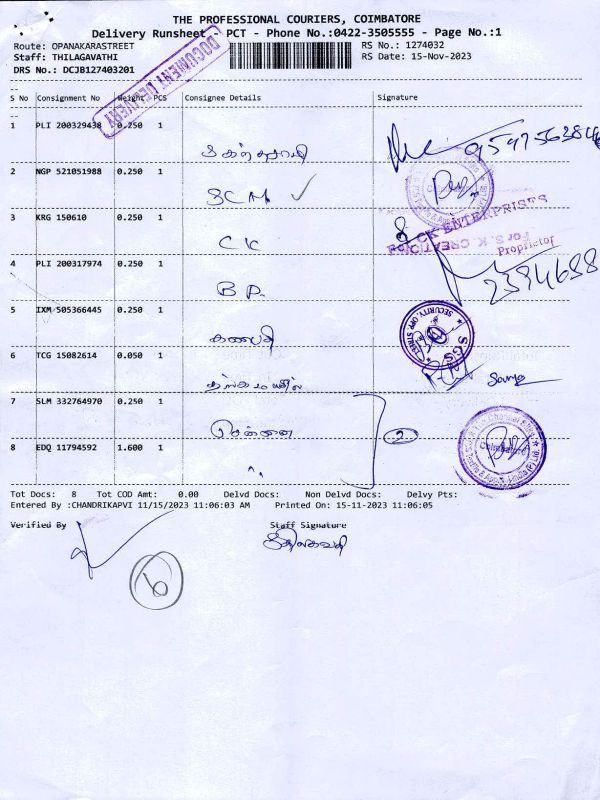 THE PROFESSIONAL COURIERS, COIMBATORE
Delivery Runsheet - PCT - Phone No.:0422-3505555 - Page No.:1
Route: OPANAKARASTREET
RS No.: 1274032
Staff: THILAGAVATHI
RS Date: 15-Nov-2023
DRS No.: DCJB127403201
DOCUMENT DELIVERY
S No Consignment No Weight PCS Consignee Details Signature
1 PLI 200329438 0.250 1
2 NGP 521051988 0.250 1 SCM
3 KRG 150610 0.250 1 CK
CK ENTERPRISES
For S.K. CREATIONS
Proprietor
4 PLI 200317974 0.250 1 B.P.
5 IXM 505366445 0.250 1 கணபதி
6 TCG 15082614 0.050 1
7 SLM 332764970 0.250 1 சென்னை
2
8 EDQ 11794592 1.600 1 "
Coimbatore
Tot Docs: 8 Tot COD Amt: 0.00 Delvd Docs: Non Delvd Docs: Delvy Pts:
Entered By :CHANDRIKAPVI 11/15/2023 11:06:03 AM Printed On: 15-11-2023 11:06:05
Verified By Staff Signature
6